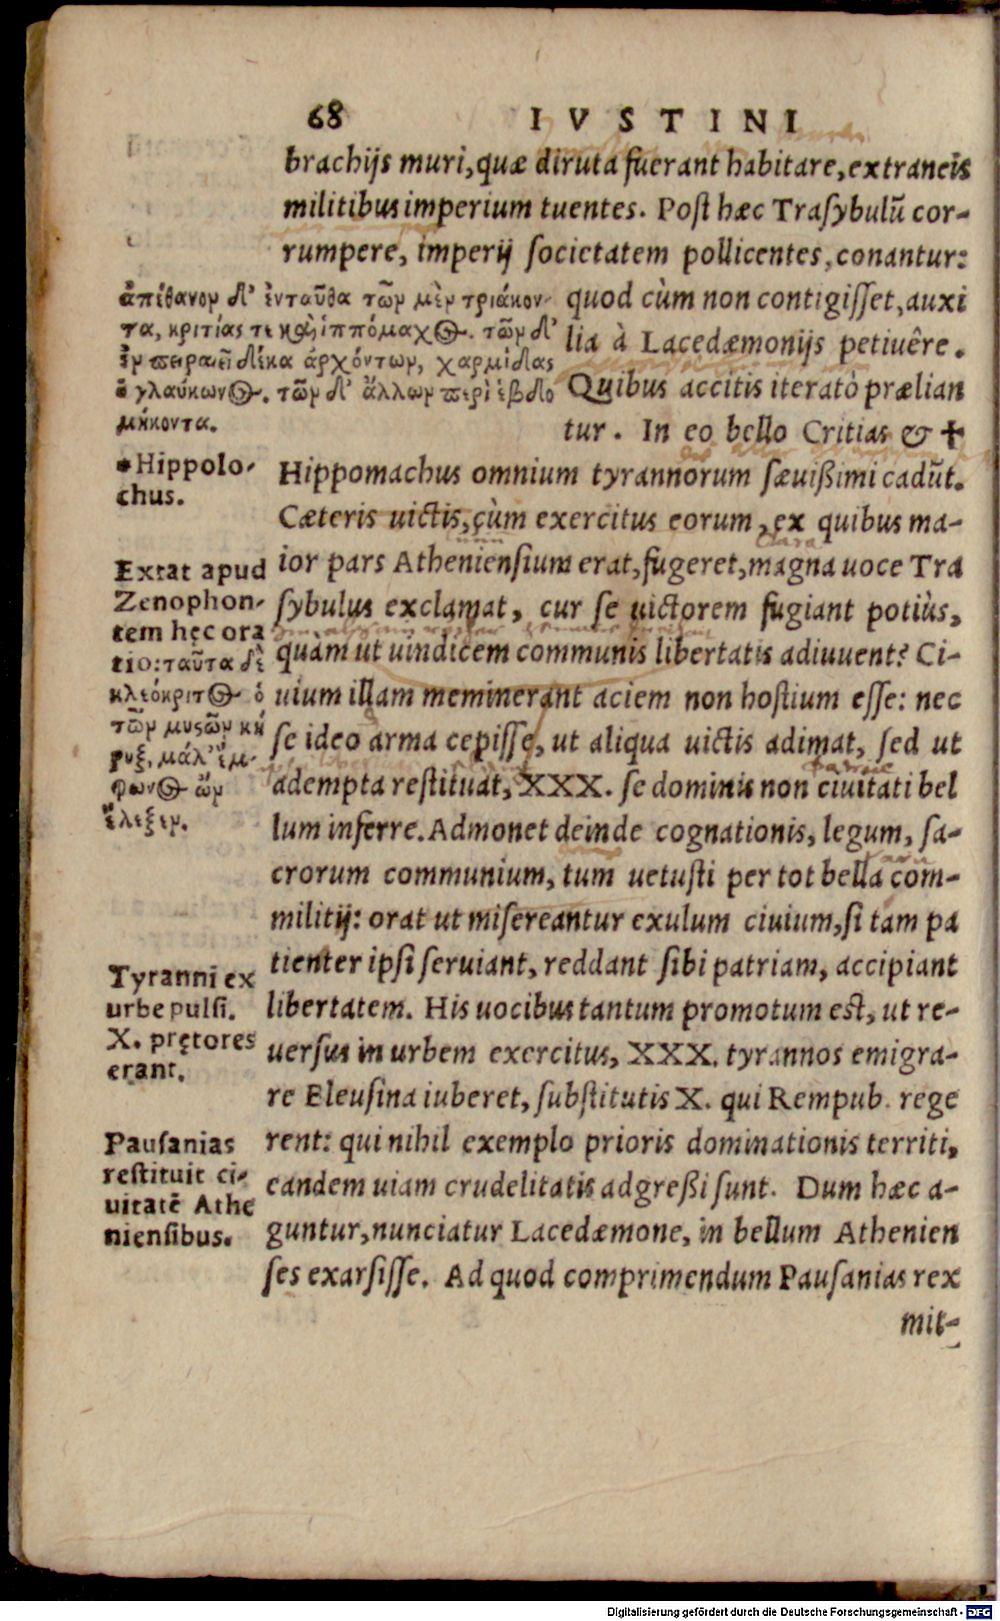 68 IVSTINI
brachijs muri, quæ diruta fuerant habitare, extraneis
militibus imperium tuentes. Post hæc Trasybulũ cor-
rumpere, imperij societatem pollicentes, conantur:
quod cùm non contigisset, auxi
lia à Lacedæmonijs petiuêre.
Quibus accitis iteratò prælian
tur. In eo bello Critias & ✝
Hippomachus omnium tyrannorum sæuißimi cadũt.
Cæteris uictis, cùm exercitus eorum, ex quibus ma-
ior pars Atheniensium erat, fugeret, magna uoce Tra
sybulus exclamat, cur se uictorem fugiant potiùs,
quàm ut uindicem communis libertatis adiuuent? Ci-
uium illam meminerant aciem non hostium esse: nec
se ideo arma cepisse, ut aliqua uictis adimat, sed ut
adempta restituat, XXX. se dominis non ciuitati bel
lum inferre. Admonet deinde cognationis, legum, sa-
crorum communium, tum uetusti per tot bella com-
militij: orat ut misereantur exulum ciuium, si tam pa
tienter ipsi seruiant, reddant sibi patriam, accipiant
libertatem. His uocibus tantum promotum est, ut re-
uersus in urbem exercitus, XXX. tyrannos emigra-
re Eleusina iuberet, substitutis X. qui Rempub. rege
rent: qui nihil exemplo prioris dominationis territi,
eandem uiam crudelitatis adgreßi sunt. Dum hæc a-
guntur, nunciatur Lacedæmone, in bellum Athenien
ses exarsisse. Ad quod comprimendum Pausanias rex
mit-
ἀπέθανον δ' ἐνταῦθα τῶν μὲν τριάκον-
τα, κριτίας τε καὶ ἱππόμαχος. τῶν δ'
ἐν πειραιεῖ δέκα ἀρχόντων, χαρμίδας
ὁ γλαύκωνος. τῶν δ' ἄλλων περὶ ἑβδο
μήκοντα.
*Hippolo-
chus.
Extat apud
Zenophon-
tem hęc ora
tio: ταῦτα δὲ
κλεόκριτος ὁ
τῶν μυςῶν κή
ρυξ, μάλ' ἔμ-
φωνος ὢν
ἔλεξεν.
Tyranni ex
urbe pulsi.
X. pretores
erant.
Pausanias
restituit ci-
uitatẽ Athe
niensibus.
Digitalisierung gefördert durch die Deutsche Forschungsgemeinschaft - DFG